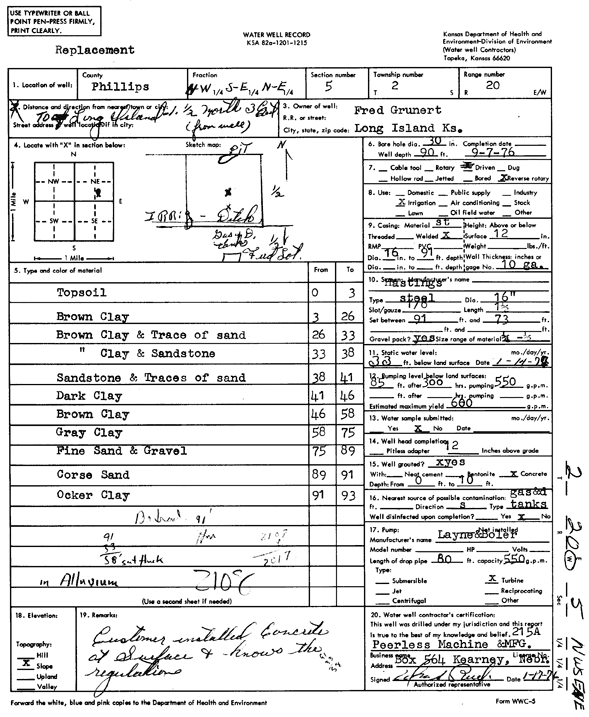 USE TYPEWRITER OR BALL
POINT PEN-PRESS FIRMLY,
PRINT CLEARLY.
WATER WELL RECORD
KSA 82a-1201-1215
Kansas Department of Health and
Environment-Division of Environment
(Water well Contractors)
Topeka, Kansas 66620
Replacement
1. Location of well:
County
Phillips
Fraction
NW 1/4 S-E 1/4 N-E 1/4
Section number
5
Township number
T 2 S
Range number
R 20 E/W
2. Distance and direction from nearest town or city:
Street address of well location if in city:
Long Island
1/2 North 3 East
(from well)
3. Owner of well: Fred Grunert
R.R. or street:
City, state, zip code: Long Island Ks.
4. Locate with "X" in section below:
N
NW NE
W E
SW SE
S
1 Mile
1 Mile
Sketch map:
Pit
N
X
1/2
IRRi - Ditch
6. Bore hole dia. 30 in. Completion date
Well depth 90 ft. 9-7-76
7. Cable tool Rotary X Driven Dug
Hollow rod Jetted Bored X Reverse rotary
8. Use: Domestic Public supply Industry
X Irrigation Air conditioning Stock
Lawn Oil field water Other
9. Casing: Material st Height: Above or below
Threaded Welded X Surface 12 in.
RMP PVC Weight lbs./ft.
Dia. 16 in. to 91 ft. depth Wall Thickness: inches or
Dia. in. to ft. depth gage No. 10 ga.
10. Screen: Manufacturer's name
Hastings
Type steel Dia. 16"
Slot/gauze 1/8 Length
Set between 91 ft. and 73 ft.
ft. and ft.
Gravel pack? yes Size range of material
11. Static water level: mo./day/yr.
33 ft. below land surface Date
12. Pumping level below land surfaces:
85 ft. after 300 hrs. pumping 550 g.p.m.
ft. after hrs. pumping g.p.m.
Estimated maximum yield 600 g.p.m.
13. Water sample submitted: mo./day/yr.
Yes X No Date
14. Well head completion: 12
Pitless adapter Inches above grade
15. Well grouted? xyes
With: Neat cement Bentonite X Concrete
Depth: From 0 ft. to 10 ft.
16. Nearest source of possible contamination: gas&d
ft. Direction s Type tanks
Well disinfected upon completion? Yes X No
17. Pump: Not installed
Manufacturer's name Layne&Boler
Model number HP Volts
Length of drop pipe 80 ft. capacity 550 g.p.m.
Type:
Submersible X Turbine
Jet Reciprocating
Centrifugal Other
5. Type and color of material From To
Topsoil 0 3
Brown Clay 3 26
Brown Clay & Trace of sand 26 33
" Clay & Sandstone 33 38
Sandstone & Traces of sand 38 41
Dark Clay 41 46
Brown Clay 46 58
Gray Clay 58 75
Fine Sand & Gravel 75 89
Corse Sand 89 91
Ocker Clay 91 93
Bedrock 91'
91
33
58'
2017
in Alluvium
(Use a second sheet if needed)
18. Elevation:
Topography:
Hill
X Slope
Upland
Valley
19. Remarks:
Customer installed Concrete
at Surface & knows the
regulations
20. Water well contractor's certification:
This well was drilled under my jurisdiction and this report
is true to the best of my knowledge and belief. 215A
Peerless Machine &MFG.
Business name License No.
Address Box 564 Kearney, Nebr
Signed Date
Authorized representative
Forward the white, blue and pink copies to the Department of Health and Environment
Form WWC-5